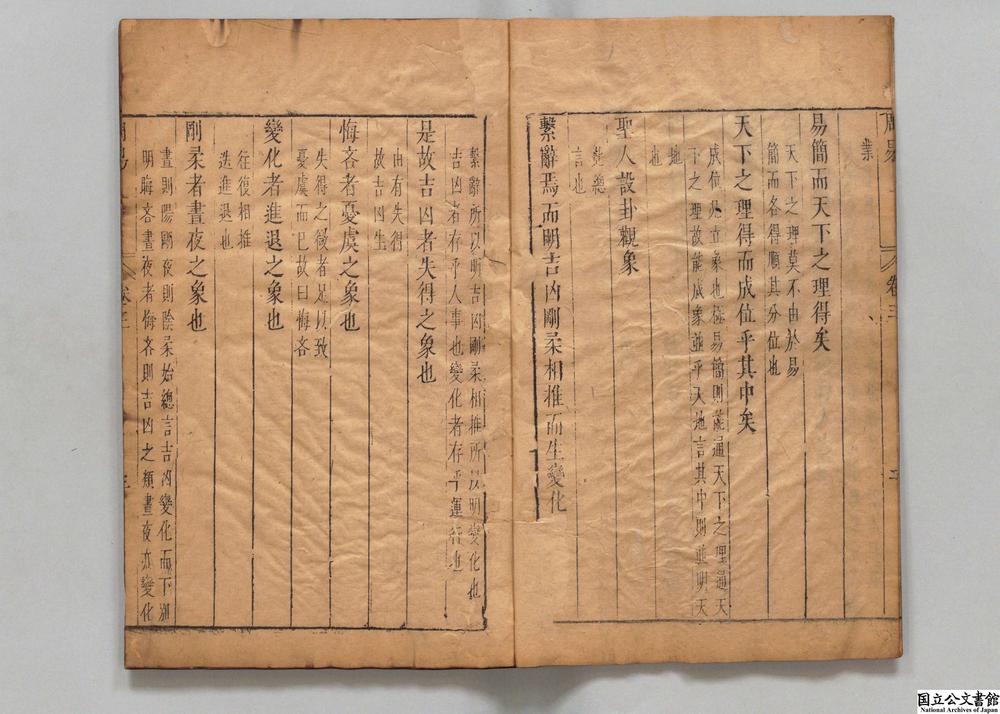 周易
卷三
業
易簡而天下之理得矣
天下之理莫不由於易
簡而各得順其分位也
天下之理得而成位乎其中矣
成位况立象也極易簡則能通天下之理通天
下之理故能成象並乎天地言其中則並明天
地也
聖人設卦觀象
此總
言也
繫辭焉而明吉凶剛柔相推而生變化
繫辭所以明吉凶剛柔相推所以明變化也
吉凶者存乎人事也變化者存乎運行也
是故吉凶者失得之象也
由有失得
故吉凶生
悔吝者憂虞之象也
失得之微者足以致
憂虞而已故曰悔吝
變化者進退之象也
往復相推
迭進退也
剛柔者晝夜之象也
晝則陽剛夜則陰柔始總言吉凶變化而下別
明悔吝晝夜者悔吝則吉凶之類晝夜亦變化
周易
卷三
三
国立公文書館
National Archives of Japan